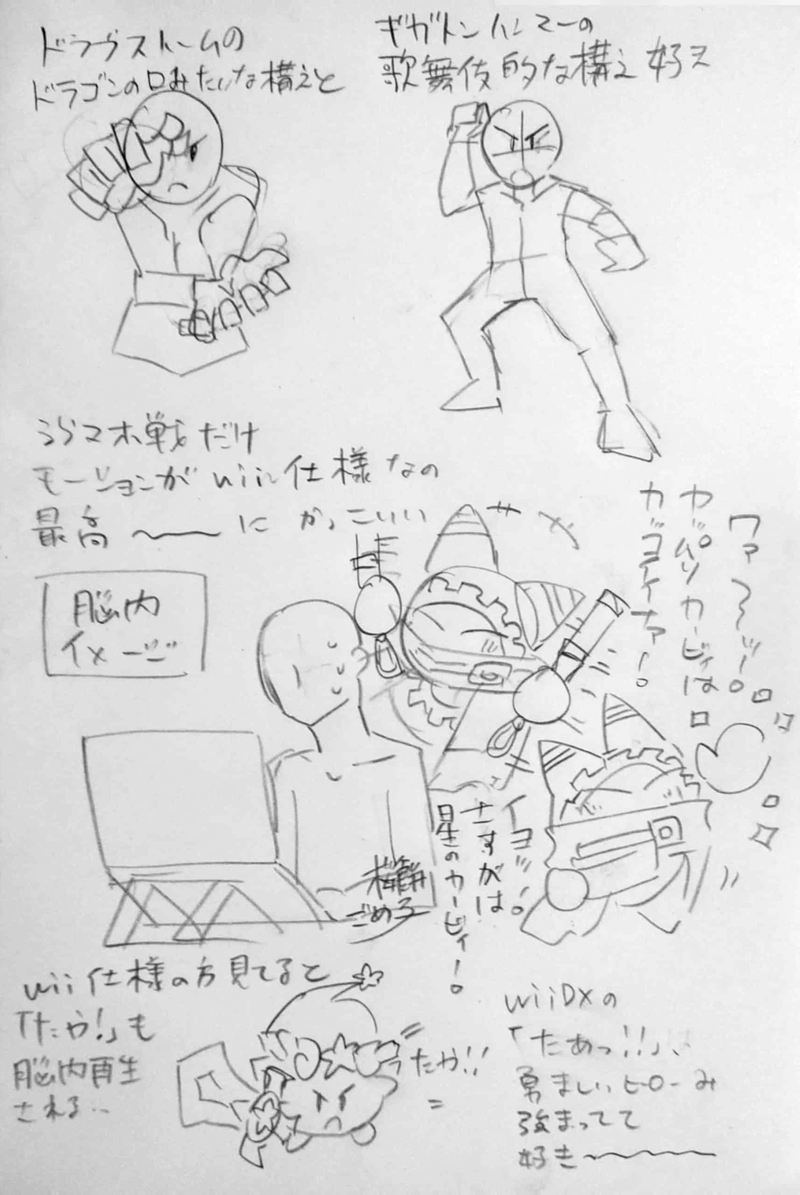 ドラグストームの
ドラゴンの口みたいな構えと
ギガトンハンマーの
歌舞伎的な構え好ヌ
うらマホ戦だけ
モーションがwii仕様なの
最高〜〜にかっこいい
脳内
イメージ
ワァ〜〜ッ!。
ヤッパリカービィは
カッコイイナァ!。
イヨッ!。
さすがは
星のカービィ!。
桜餅
ごめ子
wii仕様の方見てると
「たや!」も
脳内再生
される‥
たや!!
wiiDXの
「たあっ!!」、は
勇ましいヒーローみ
強まってて
好き〜〜〜